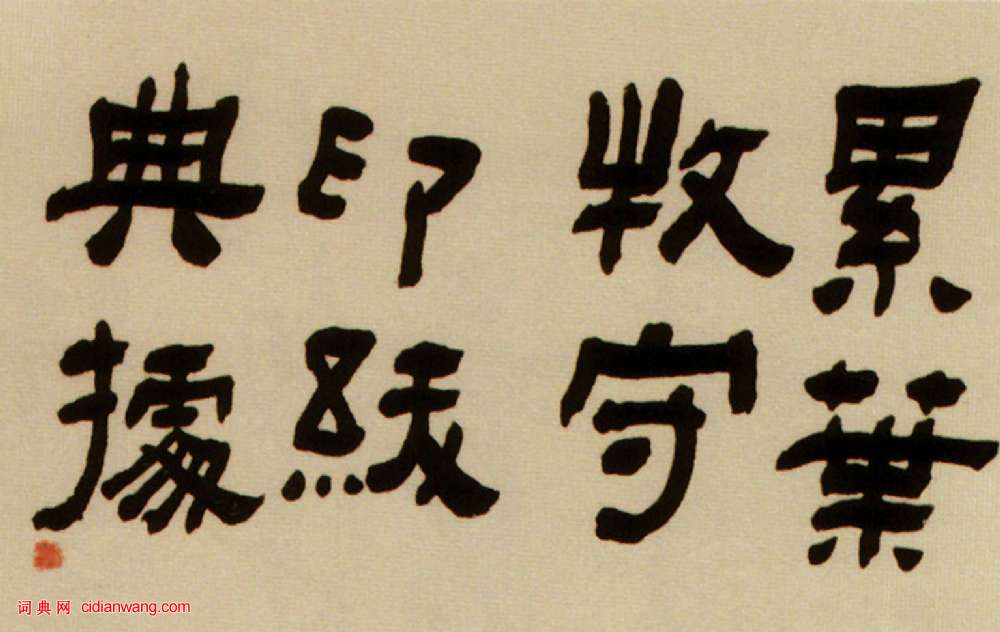 累葉
牧守
印紱
典據
词典网 cidianwang.com